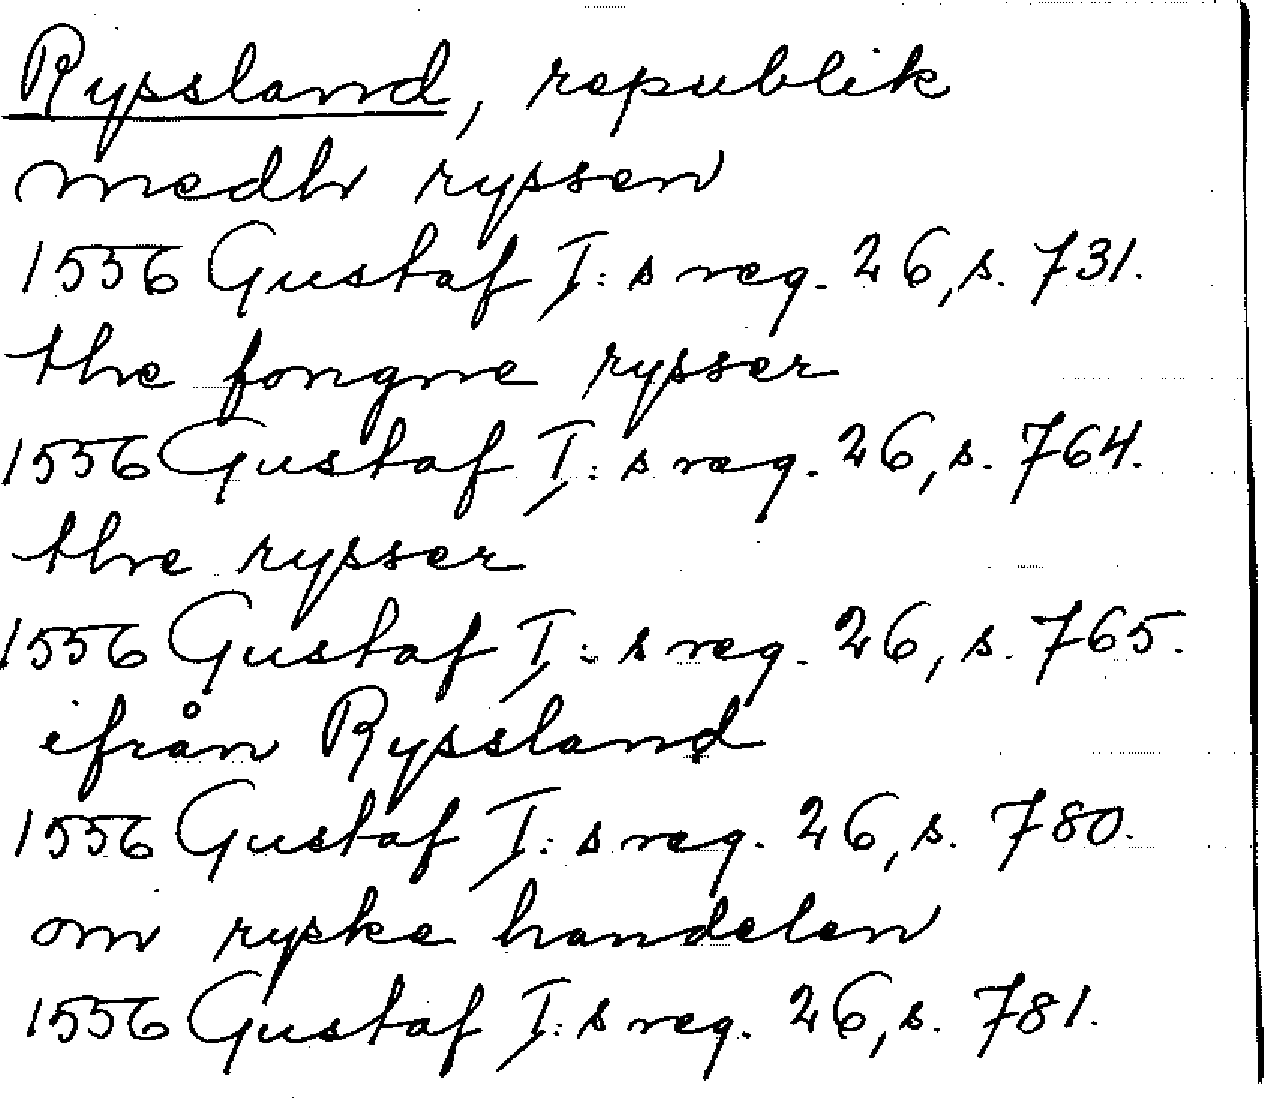 Ryssland, republik
medh ryssen
1556 Gustaf I:s reg. 26, s. 731.
the fongne rysser
1556 Gustaf I:s reg. 26, s. 764.
the rysser
1556 Gustaf I:s reg. 26, s. 765.
ifrån Ryssland
1556 Gustaf I:s reg. 26, s. 780.
om ryske handelen
1556 Gustaf I:s reg. 26, s. 781.